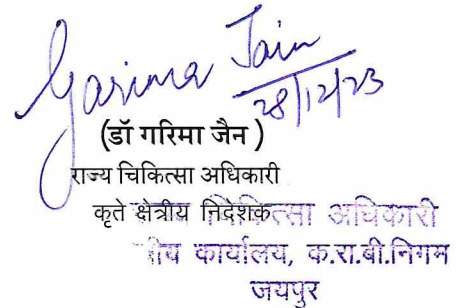 Garima Jain
28/12/23
(डॉ गरिमा जैन )
राज्य चिकित्सा अधिकारी
कृते क्षेत्रीय निदेशक
चिकित्सा अधिकारी
कार्यालय, क.रा.बी.निगम
जयपुर